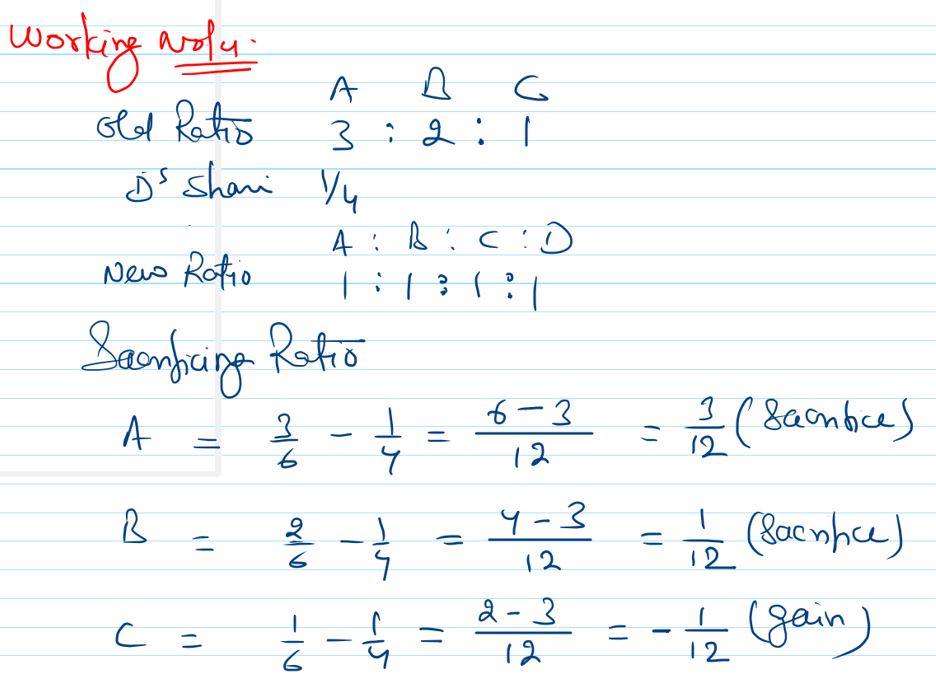 Working Note.
A B C
Old Ratio 3 : 2 : 1
D's Share 1/4
A : B : C : D
New Ratio 1 : 1 : 1 : 1
Sacrificing Ratio
A = 3/6 - 1/4 = 6-3/12 = 3/12 (Sacrifice)
B = 2/6 - 1/4 = 4-3/12 = 1/12 (Sacrifice)
C = 1/6 - 1/4 = 2-3/12 = -1/12 (gain)